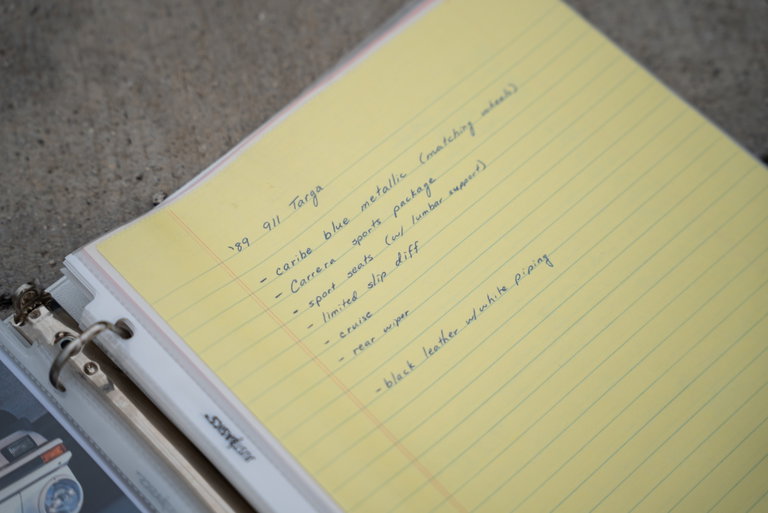 '89 911 Targa
- caribe blue metallic (matching wheels)
- Carrera sports package
- sport seats (w/ lumbar support)
- limited slip diff
- cruise
- rear wiper
- black leather w/ white piping